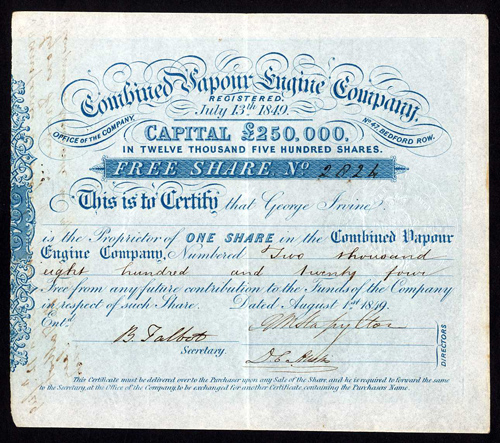 Combined Vapour Engine Company.
REGISTERED
July 13th 1849.
OFFICE OF THE COMPANY
No 47, BEDFORD ROW.
CAPITAL £250,000,
IN TWELVE THOUSAND FIVE HUNDRED SHARES.
FREE SHARE No 2824
This is to Certify that George Irvine
is the Proprietor of ONE SHARE in the Combined Vapour
Engine Company, Numbered Two thousand
eight hundred and twenty four
Free from any future contribution to the Funds of the Company
in respect of such Share. Dated August 1st 1849.
Entd.
B. Talbot
Secretary.
DIRECTORS
This Certificate must be delivered over to the Purchaser upon any Sale of the Share, and he is required to forward the same
to the Secretary, at the Office of the Company, to be exchanged for another Certificate, containing the Purchasers Name.